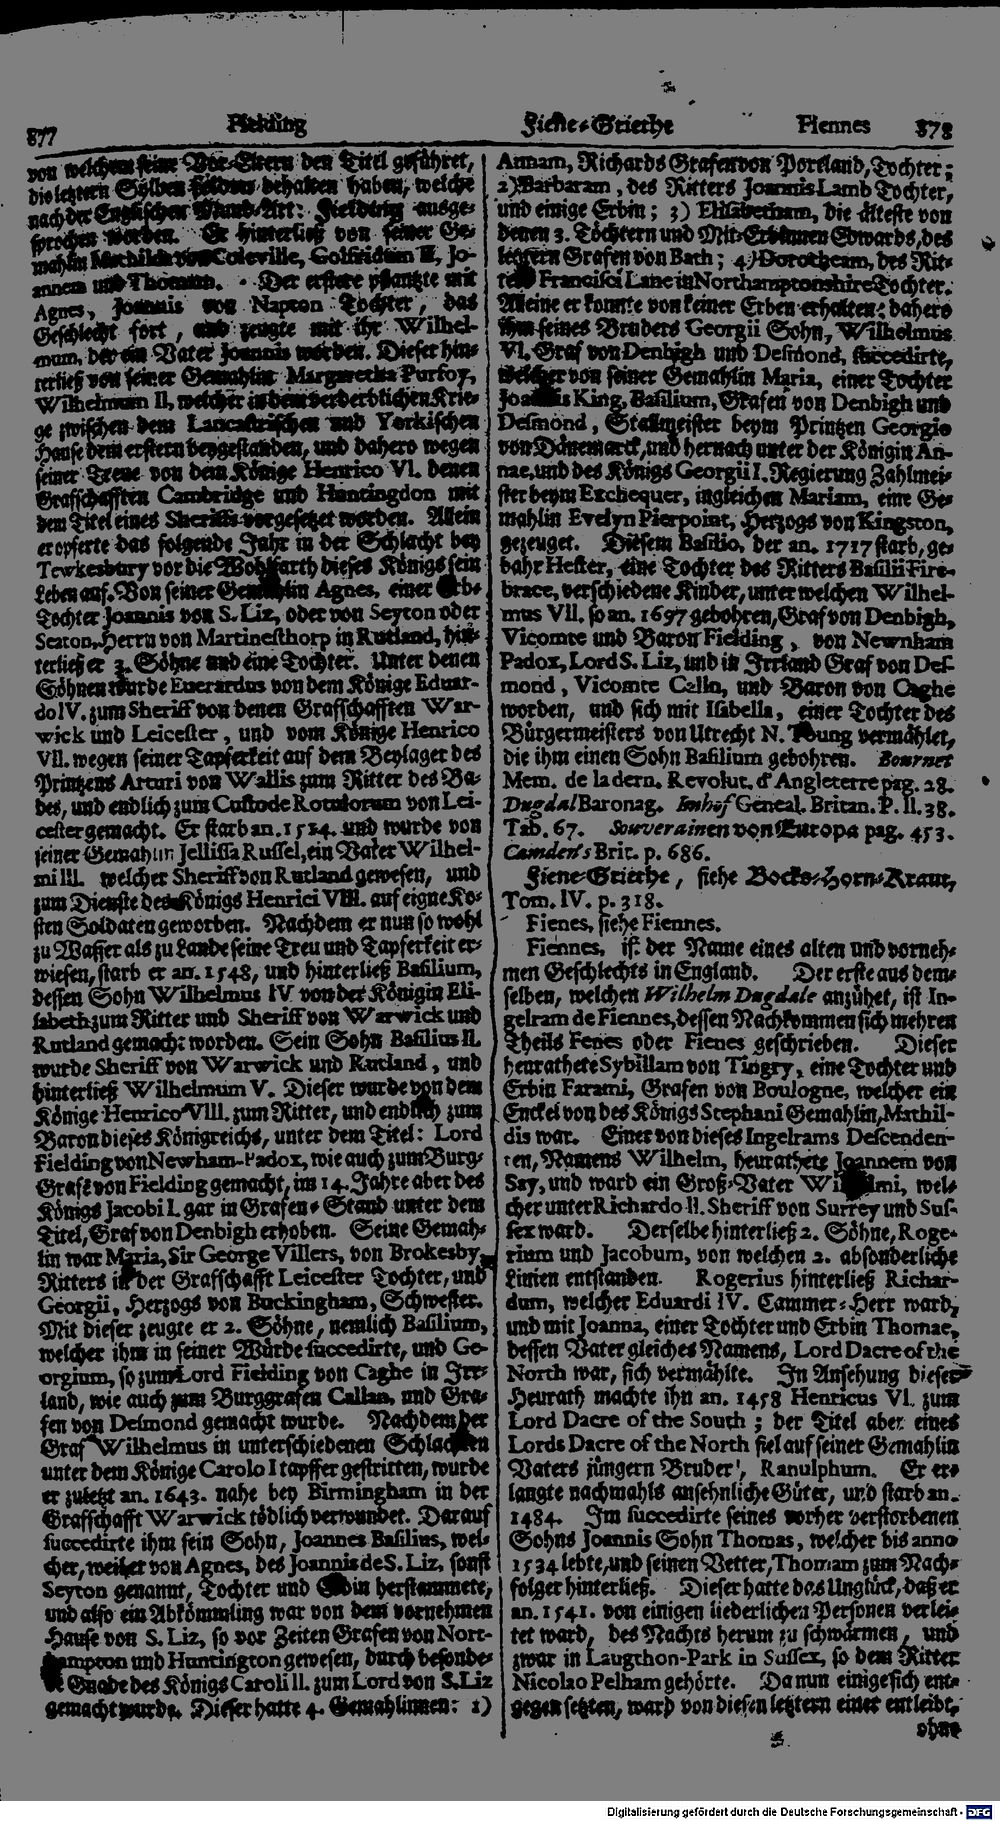 877 Fielding
Fiene-Griethe Fiennes 878
von welchem seine Vor-Eltern den Titel geführet,
die letztern Sölben Feldens behalten haben, welche
nach der Englischen Mund-Art: Fielding ausge-
sprochen worden. Er hinterließ von seiner Ge-
mahlin Mathilda von Coleville, Golfridum II, Jo-
annem und Thomam. Der erstere pflantzte mit
Agnes, Joannis von Napton Tochter, das
Geschlecht fort, und zeugte mit ihr Wilhel-
mum, der ein Vater Joannis worden. Dieser hin-
terließ von seiner Gemahlin Margaretha Purfoy,
Wilhelmum II, welcher in dem verderblichen Krie-
ge zwischen dem Lancastrischen und Yorkischen
Hause dem erstern beygestanden, und dahero wegen
seiner Treue von dem Könige Henrico VI. denen
Grafschafften Cambridge und Huntingdon mit
dem Titel eines Sheriffs vorgesetzet worden. Allein
er opferte das folgende Jahr in der Schlacht bey
Tewkesbury vor die Wohlfarth dieses Königs sein
Leben auf. Von seiner Gemahlin Agnes, einer Erb-
Tochter Joannis von S. Liz, oder von Seyton oder
Seaton, Herrn von Martinesthorp in Rutland, hin-
terließ er 3. Söhne und eine Tochter. Unter denen
Söhnen wurde Euerardus von dem Könige Eduar-
do IV. zum Sheriff von denen Grafschafften War-
wick und Leicester, und vom Könige Henrico
VII. wegen seiner Tapferkeit auf dem Beylager des
Printzens Arturi von Wallis zum Ritter des Ba-
des, und endlich zum Custode Rotulorum von Lei-
cester gemacht. Er starb an. 1524. und wurde von
seiner Gemahlin Jellissa Russel, ein Vater Wilhel-
mi III. welcher Sheriff von Rutland gewesen, und
zum Dienste des Königs Henrici VIII. auf eigne Ko-
sten Soldaten geworben. Nachdem er nun so wohl
zu Wasser als zu Lande seine Treu und Tapferkeit er-
wiesen, starb er an. 1548, und hinterließ Basilium,
dessen Sohn Wilhelmus IV von der Königin Eli-
sabeth zum Ritter und Sheriff von Warwick und
Rutland gemacht worden. Sein Sohn Basilius II.
wurde Sheriff von Warwick und Rutland, und
hinterließ Wilhelmum V. Dieser wurde von dem
Könige Henrico VIII. zum Ritter, und endlich zum
Baron dieses Königreichs, unter dem Titel: Lord
Fielding von Newham-Padox, wie auch zum Burg-
Grafe von Fielding gemacht, im 14. Jahre aber des
Königs Jacobi I. gar in Grafen-Stand unter dem
Titel, Graf von Denbigh erhoben. Seine Gemah-
lin war Maria, Sir George Villers, von Brokesby,
Ritters in der Grafschafft Leicester Tochter, und
Georgii, Herzogs von Buckingham, Schwester.
Mit dieser zeugte er 2. Söhne, nemlich Basilium,
welcher ihm in seiner Würde succedirte, und Ge-
orgium, so zum Lord Fielding von Caghe in Irr-
land, wie auch zum Burggrafen Callan, und Gra-
fen von Desmond gemacht wurde. Nachdem der
Graf Wilhelmus in unterschiedenen Schlachten
unter dem Könige Carolo I tapffer gestritten, wurde
er zuletzt an. 1643. nahe bey Birmingham in der
Grafschafft Warwick tödlich verwundet. Darauf
succedirte ihm sein Sohn, Joannes Basilius, wel-
cher, weil er von Agnes, des Joannis de S. Liz, sonst
Seyton genannt, Tochter und Erbin herstammete,
und also ein Abkömmling war von dem vornehmen
Hause von S. Liz, so vor Zeiten Grafen von Nort-
hampton und Huntington gewesen, durch besonde-
re Gnade des Königs Caroli II. zum Lord von S. Liz
gemacht wurde. Dieser hatte 4. Gemahlinnen: 1)
Annam, Richards Grafen von Portland, Tochter;
2) Barbaram, des Ritters Joannis Lamb Tochter,
und einige Erbin; 3) Elisabetham, die älteste von
denen 3. Töchtern und Mit-Erbinnen Edwards, des
letztern Grafen von Bath; 4) Dorotheam, des Rit-
ters Francisci Lane in Northamptonshire Tochter.
Alleine er konnte von keiner Erben erhalten; dahero
ihm seines Bruders Georgii Sohn, Wilhelmus
VI. Graf von Denbigh und Desmond, succedirte,
welcher von seiner Gemahlin Maria, einer Tochter
Joannis King, Basilium, Grafen von Denbigh und
Desmond, Stallmeister beym Printzen Georgio
von Dänemarck, und hernach unter der Königin An-
nae, und des Königs Georgii I. Regierung Zahlmei-
ster beym Exchequer, ingleichen Mariam, eine Ge-
mahlin Evelyn Pierpoint, Herzogs von Kingston,
gezeuget. Diesem Basilio, der an. 1717 starb, ge-
bahr Hester, eine Tochter des Ritters Basilii Fire-
brace, verschiedene Kinder, unter welchen Wilhel-
mus VII. so an. 1697 gebohren, Graf von Denbigh,
Vicomte und Baron Fielding, von Newnham
Padox, Lord S. Liz, und in Irrland Graf von Des-
mond, Vicomte Calln, und Baron von Caghe
worden, und sich mit Isabella, einer Tochter des
Bürgermeisters von Utrecht N. Young vermählet,
die ihm einen Sohn Basilium gebohren. Bournet
Mem. de la dern. Revolut. d'Angleterre pag. 28.
Dugdal Baronag. Imhof Geneal. Britan. P. II. 38.
Tab. 67. Souverainen von Europa pag. 453.
Camden's Brit. p. 686.
Fiene-Griethe, siehe Bocks-Horn-Kraut,
Tom. IV. p. 318.
Fienes, siehe Fiennes.
Fiennes, ist der Name eines alten und vorneh-
men Geschlechts in England. Der erste aus dem-
selben, welchen Wilhelm Dugdale anzühet, ist In-
gelram de Fiennes, dessen Nachkommen sich mehren
Theils Fenes oder Fienes geschrieben. Dieser
heurathete Sybillam von Tingry, eine Tochter und
Erbin Farami, Grafen von Boulogne, welcher ein
Enckel von des Königs Stephani Gemahlin, Mathil-
dis war. Einer von dieses Ingelrams Descenden-
ten, Namens Wilhelm, heurathete Joannem von
Say, und ward ein Groß-Vater Wilhelmi, wel-
cher unter Richardo II. Sheriff von Surrey und Sus-
sex ward. Derselbe hinterließ 2. Söhne, Roge-
rium und Jacobum, von welchen 2. absonderliche
Linien entstanden. Rogerius hinterließ Richar-
dum, welcher Eduardi IV. Cammer-Herr ward,
und mit Joanna, einer Tochter und Erbin Thomae,
dessen Vater gleiches Namens, Lord Dacre of the
North war, sich vermählte. In Ansehung dieser
Heurath machte ihn an. 1458 Henricus VI. zum
Lord Dacre of the South; der Titel aber eines
Lords Dacre of the North fiel auf seiner Gemahlin
Vaters jüngern Bruder, Ranulphum. Er er-
langte nachmahls ansehnliche Güter, und starb an.
1484. Im succedirte seines vorher verstorbenen
Sohns Joannis Sohn Thomas, welcher bis anno
1534 lebte, und seinen Vetter, Thomam zum Nach-
folger hinterließ. Dieser hatte das Unglück, daß er
an. 1541. von einigen liederlichen Personen verlei-
tet ward, des Nachts herum zu schwärmen, und
zwar in Laugthon-Park in Sussex, so dem Ritter
Nicolao Pelham gehörte. Da nun einige sich ent-
gegen setzten, ward von diesen letztern einer entleibt,
ohne
Digitalisierung gefördert durch die Deutsche Forschungsgemeinschaft - DFG